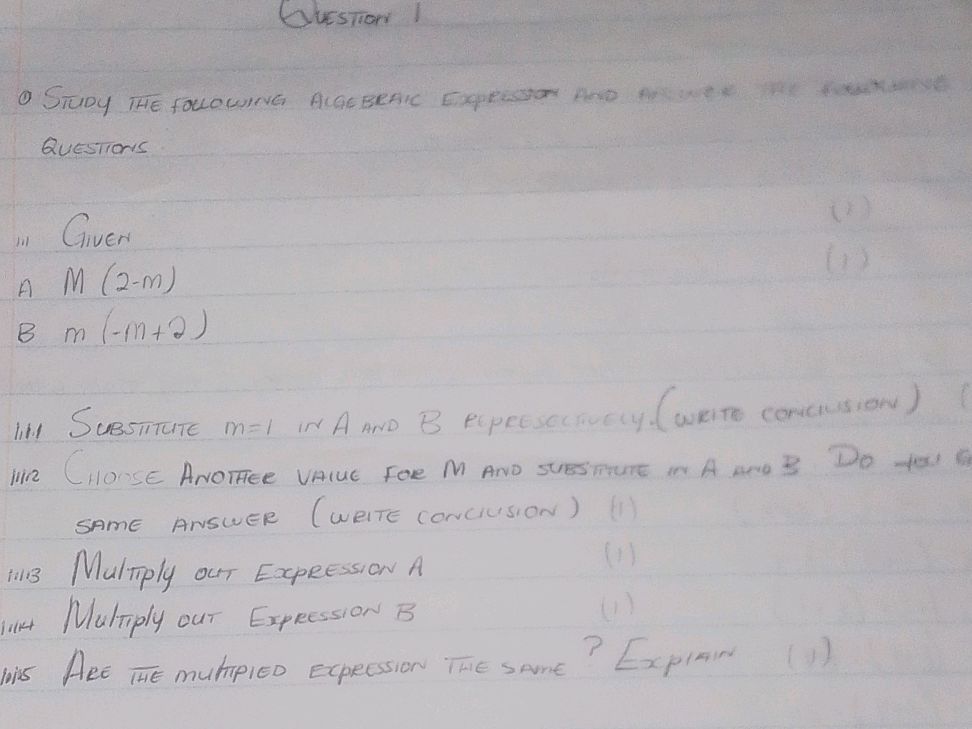 QUESTION 1
① STUDY THE FOLLOWING ALGEBRAIC EXPRESSION AND ANSWER THE FOLLOWING
QUESTIONS
1.1 GIVEN (1)
A M (2-m) (1)
B m (-m+2)
1.1.1 SUBSTITUTE m=1 IN A AND B REPRESECTIVELY. (WRITE CONCLUSION) (
1.1.2 CHOOSE ANOTHER VALUE FOR M AND SUBSTITUTE IN A AND B DO YOU
SAME ANSWER (WRITE CONCLUSION) (1)
1.1.3 Multiply OUT EXPRESSION A (1)
1.1.4 Multiply OUT EXPRESSION B (1)
1.1.5 ARE THE MULTIPIED EXPRESSION THE SAME ? EXPLAIN (1)